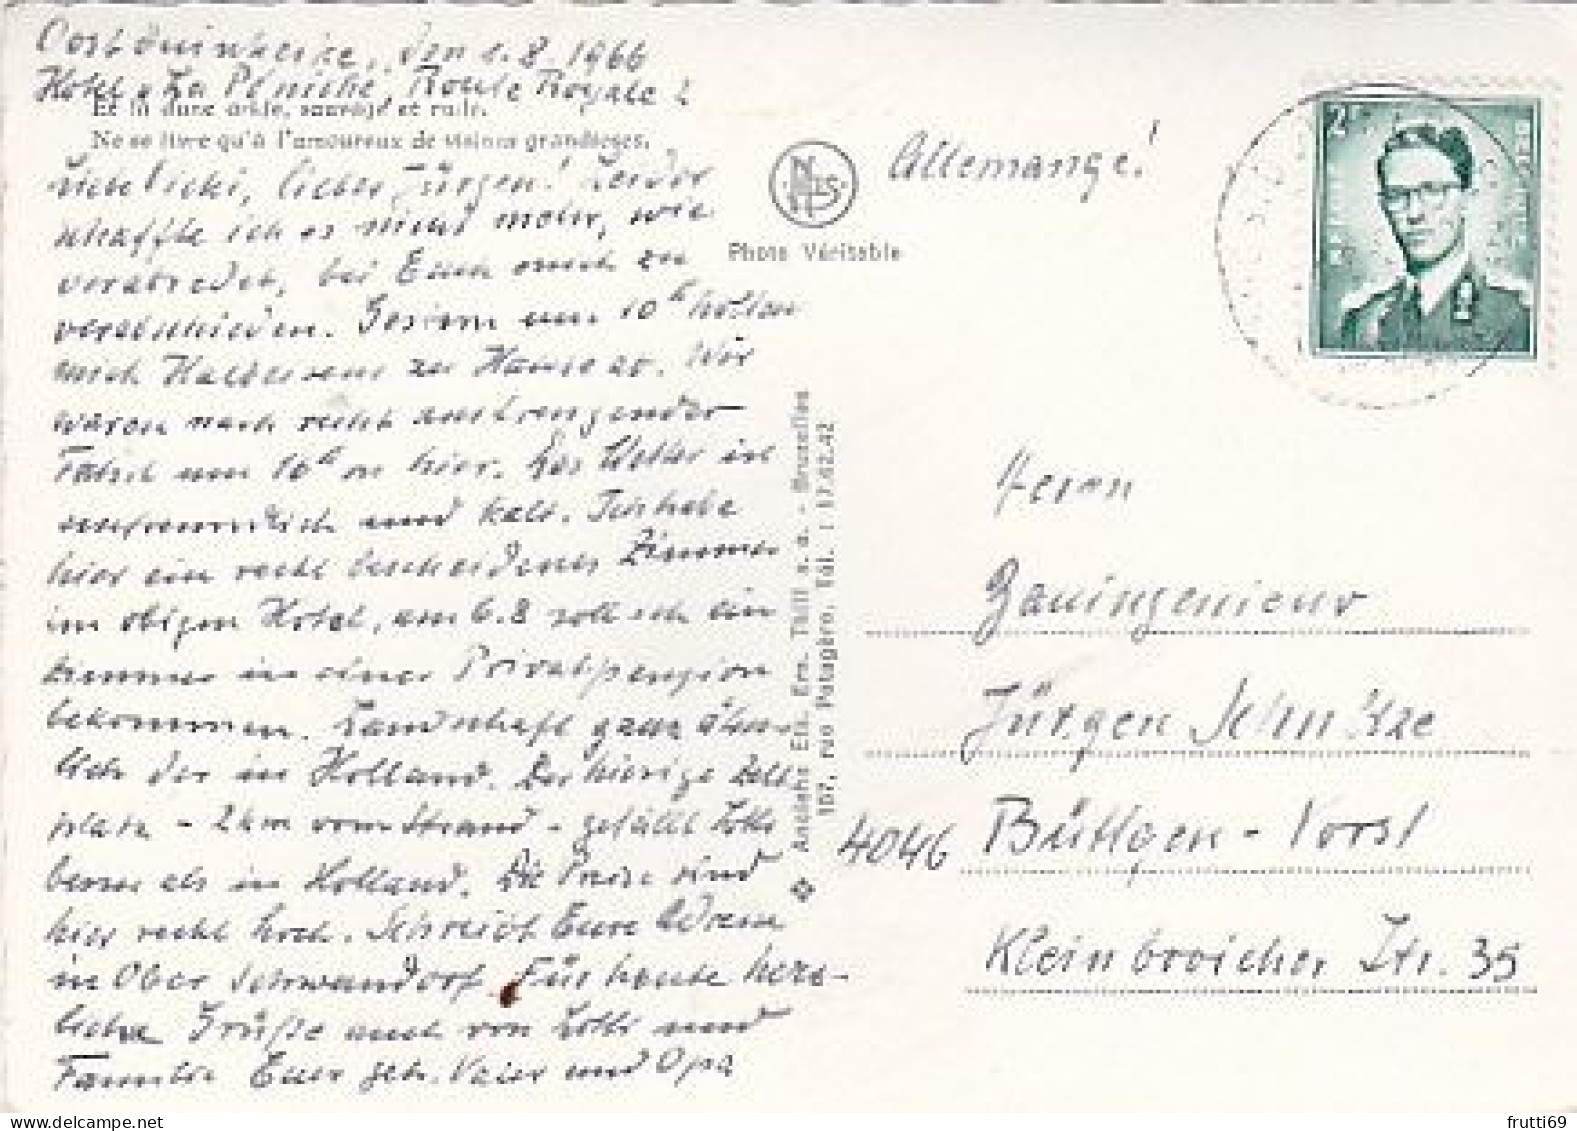 Oostduinkerke, den 1.8.1966
Hotel "La Péniche", Route Royale 2
Et la dune aride, sauvage et rude.
Ne se livre qu'à l'amoureux de visions grandioses.
lieber Jürgen! Leider
schaffte ich es nicht mehr, wie
verabredet, bei Euch mich zu
verabschieden. Gestern um 10 h holten
mich zu Hause ab. Wir
waren nach recht anstrengender
Fahrt um 16 h hier. Das Wetter ist
unfreundlich und kalt. Ich habe
hier ein recht bescheidenes Zimmer
im obigen Hotel, am 6.8 soll ich ein
Zimmer in einer Privatpension
bekommen. Landschaft ganz ähn-
lich der in Holland. Der hiesige Zelt
platz - 2 km vom Strand - gefällt Lotti
besser als in Holland. Die Preise sind
hier recht hoch. Schreibt Eure Adresse
in Ober Schwandorf. Für heute herz-
liche Grüße auch von Lotti und
Familie Euer Vater und Opa
NELS
Photo Véritable
Anciens Ets. Ern. Thill s. a. - Bruxelles
107, rue Patagère, Tél. : 17.62.42
Allemange!
2F
Herrn
Bauingenieur
Jürgen Schultze
4046 Büttgen-Vorst
Kleinbroicher Str. 35
frutti69